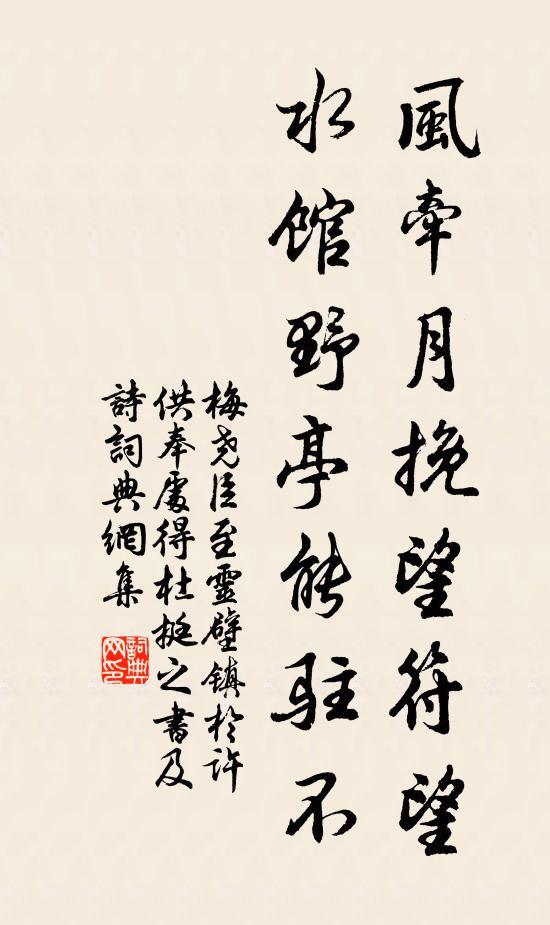 風牽月挽望符望
水館野亭能駐不
梅堯臣至靈壁鎮於許
供奉處得杜挺之書及
詩詞典網集
詞典網印